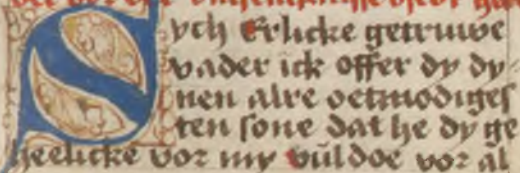 Sych Erlicke getruwe
vader ick offer dy dy
nen alre oetmodiges
ten sone dat he dy ge
heelicke vor my vuldoe vor al